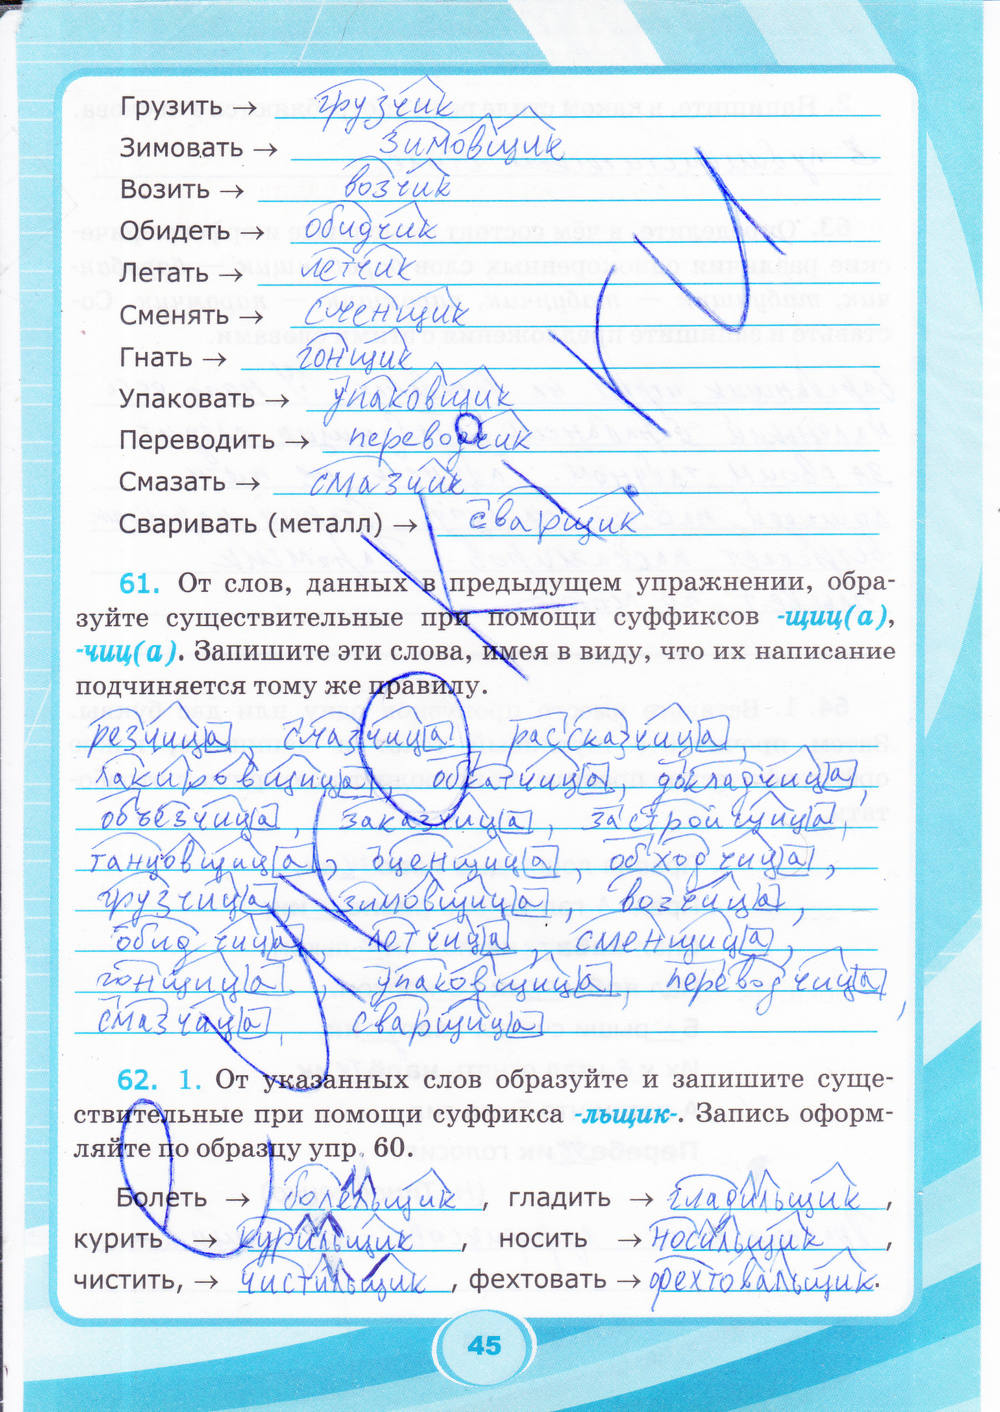 Грузить → грузчик
Зимовать → зимовщик
Возить → возчик
Обидеть → обидчик
Летать → летчик
Сменять → сменщик
Гнать → гонщик
Упаковать → упаковщик
Переводить → переводчик
Смазать → смазчик
Сваривать (металл) → сварщик
61. От слов, данных в предыдущем упражнении, обра-
зуйте существительные при помощи суффиксов -щиц(а),
-чиц(а). Запишите эти слова, имея в виду, что их написание
подчиняется тому же правилу.
резчица, смазчица, рассказчица,
лакировщица, обкатчица, докладчица,
объезчица, заказчица, застройщица,
танцовщица, оценщица, обходчица,
грузчица, зимовщица, возчица,
обидчица, летчица, сменщица,
гонщица, упаковщица, переводчица,
смазчица, сварщица
62. 1. От указанных слов образуйте и запишите суще-
ствительные при помощи суффикса -льщик-. Запись оформ-
ляйте по образцу упр. 60.
Болеть → болельщик, гладить → гладильщик,
курить → курильщик, носить → носильщик,
чистить, → чистильщик, фехтовать → фехтовальщик.
45